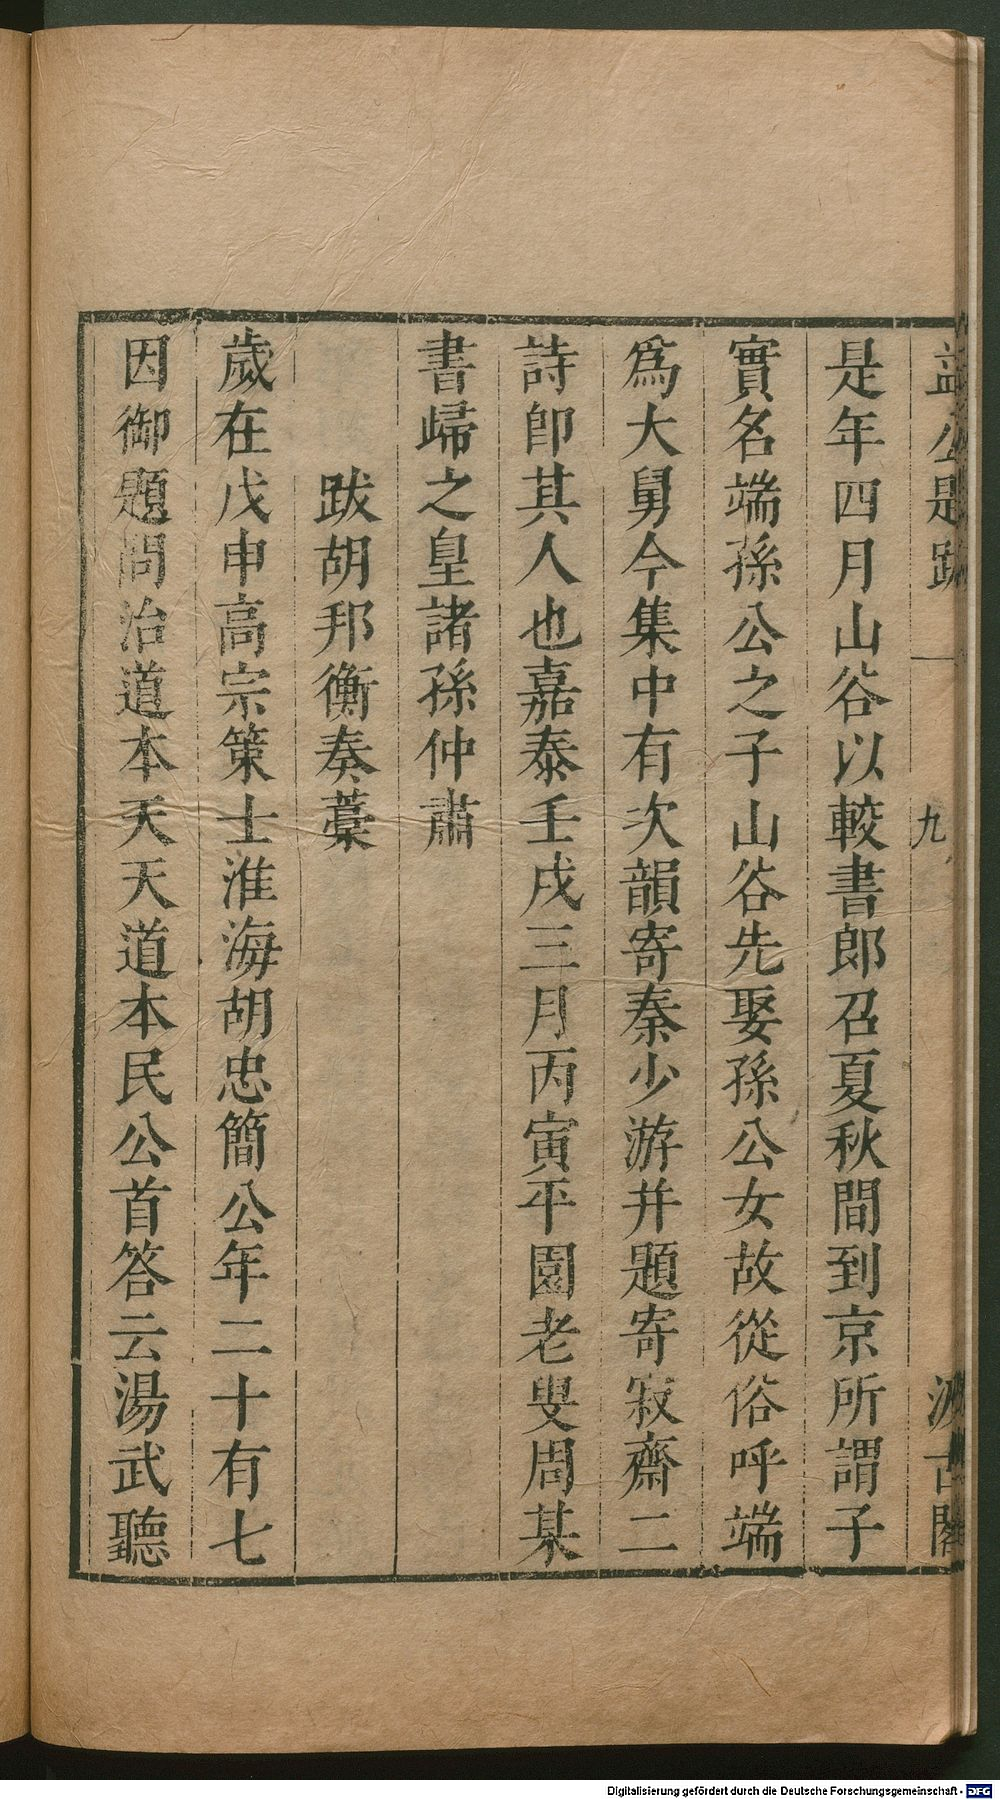 益公題跋 一 九 汲古閣
是年四月山谷以較書郎召夏秋間到京所謂子
實名端孫公之子山谷先娶孫公女故從俗呼端
爲大舅今集中有次韻寄秦少游并題寄寂齋二
詩卽其人也嘉泰壬戌三月丙寅平園老叟周某
書歸之皇諸孫仲肅
跋胡邦衡奏藁
歲在戊申高宗策士淮海胡忠簡公年二十有七
因御題問治道本天天道本民公首答云湯武聽
Digitalisierung gefördert durch die Deutsche Forschungsgemeinschaft - DFG